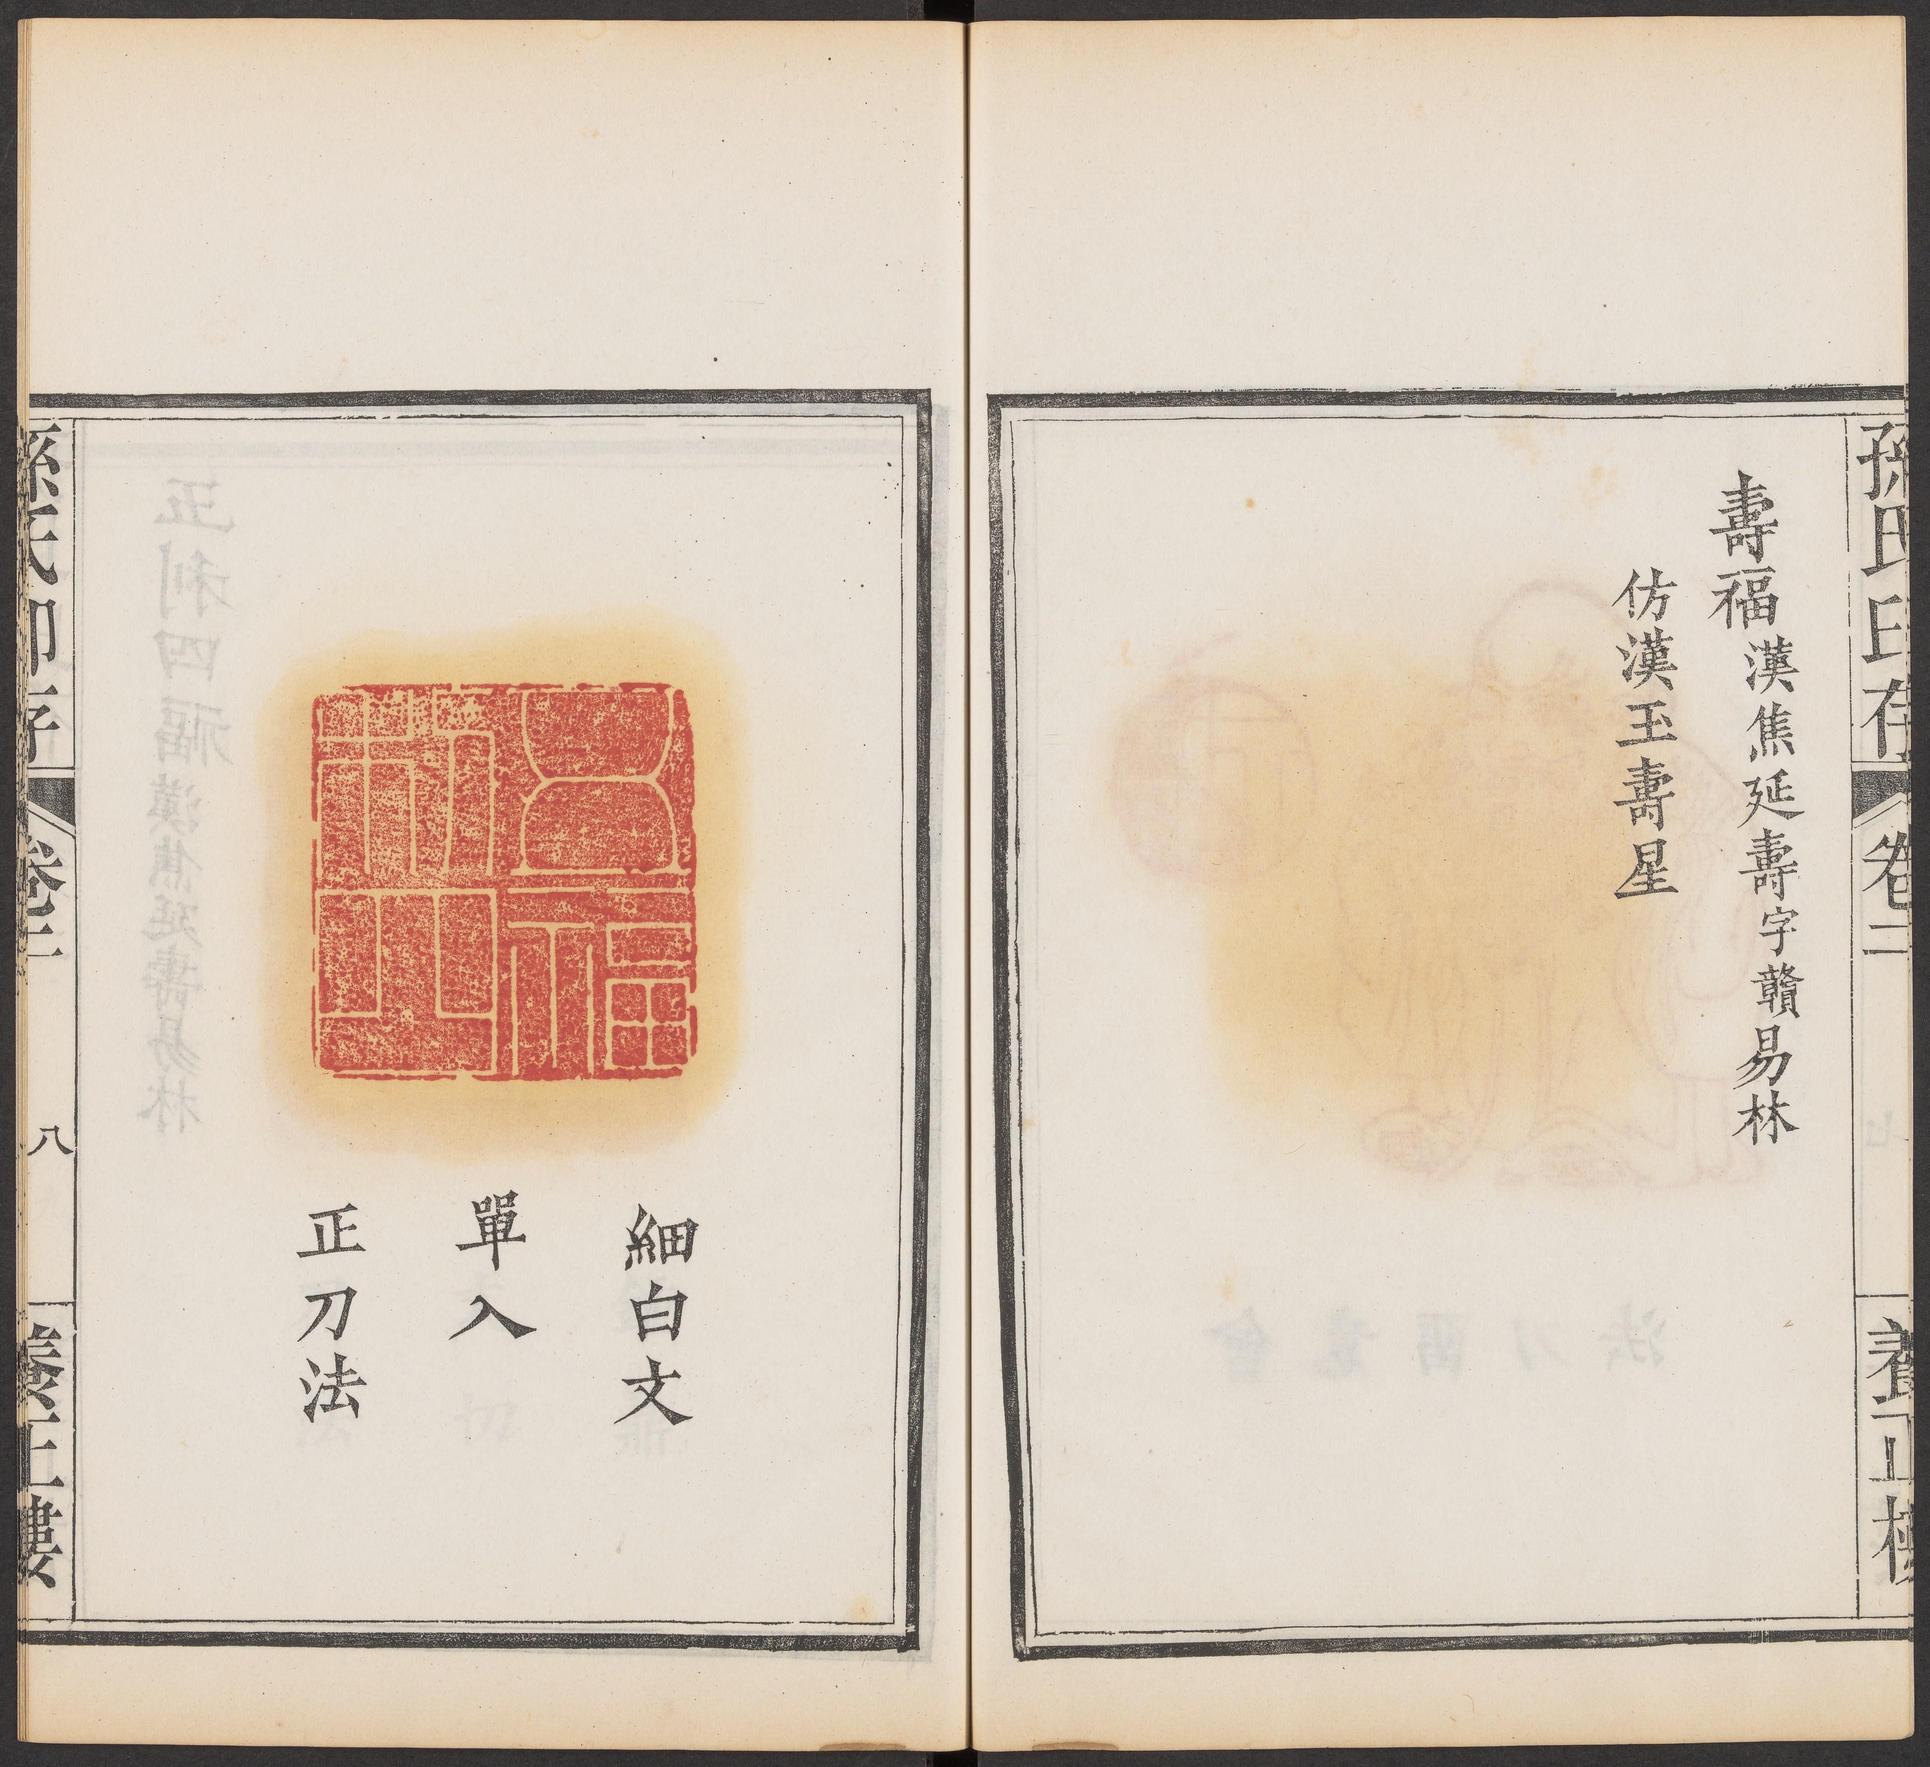 孫氏印存 卷二 養正樓
壽福 漢焦延壽字贛易林
仿漢玉壽星
五利四福
細白文
單入
正刀法
孫氏印存 卷二 八 養正樓